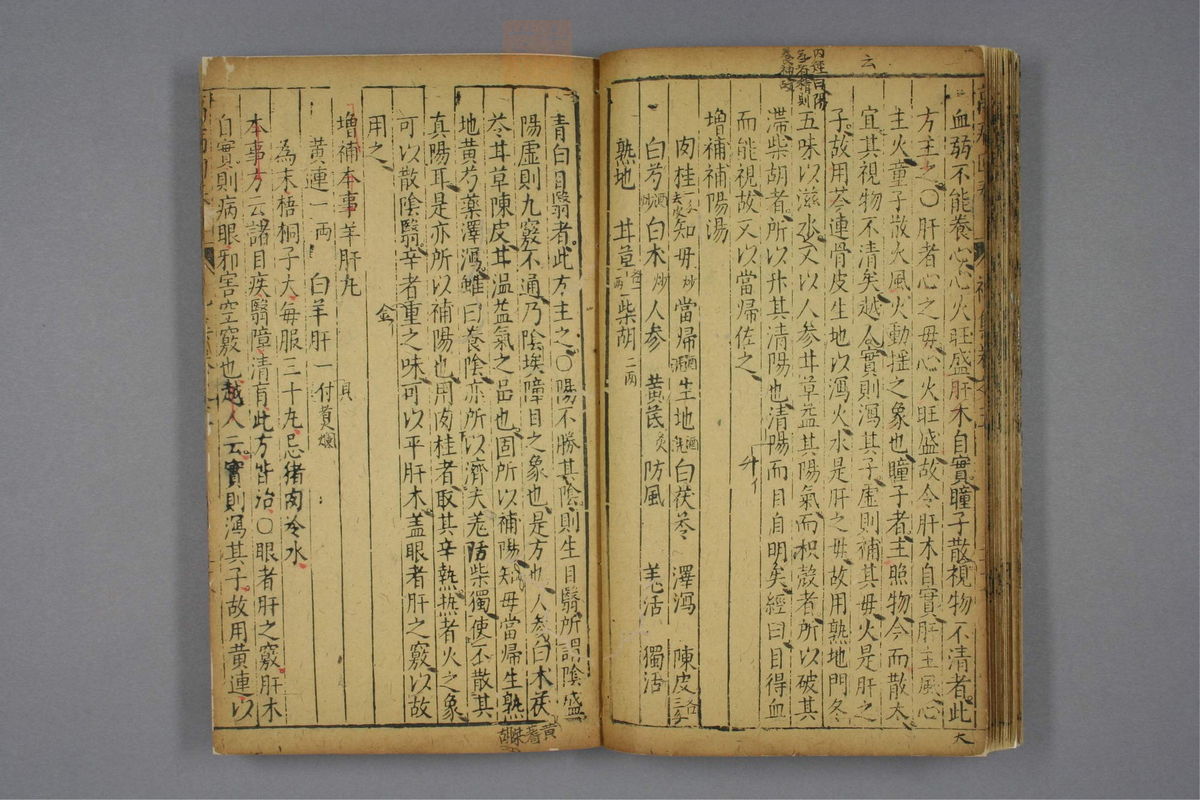 血弱不能養心心火旺盛肝木自實瞳子散視物不清者此
方主之○肝者心之毋心火旺盛故令肝木自實肝主風心
主火童子散火風火動搖之象也瞳子者主照物今而散大
宜其視物不清矣越人實則瀉其子虛則補其毋火是肝之
子故用芩連骨皮生地以瀉火水是肝之毋故用熟地門冬
五味以滋水又以人参甘草益其陽氣而枳殼者所以破其
滯柴胡者所以升其清陽也清陽而目自明矣經曰目得血
而能視故又以當歸佐之
增補補陽湯
肉桂一去皮知毋炒當歸酒生地酒洗白茯苓 澤瀉 陳皮各三
白芍酒炒白木炒人参 黃芪炙防風 羌活 獨活
熟地 甘草 柴胡二两
青白目翳者此方主之○陽不勝其陰則生目翳所謂陰盛
陽虛則九竅不通乃陰埃障目之象也是方也人参白木茯
苓甘草陳皮甘溫益氣之品也固所以補陽知毋當歸生熟
地黃芍藥澤瀉雖曰養陰亦所以濟夫羌防柴獨使不散其
真陽耳是亦所以補陽也用肉桂者取其辛熱熱者火之象
可以散陰翳辛者金之味可以平肝木盖眼者肝之竅以故
用之
增補本事羊肝丸
黃連一两 白羊肝一付煑爛
為末梧桐子大每服三十丸忌猪肉冷水
本事方云諸目疾翳障清盲此方皆治○眼者肝之竅肝木
自實則病眼邪害空竅也越人云實則瀉其子故用黃連以